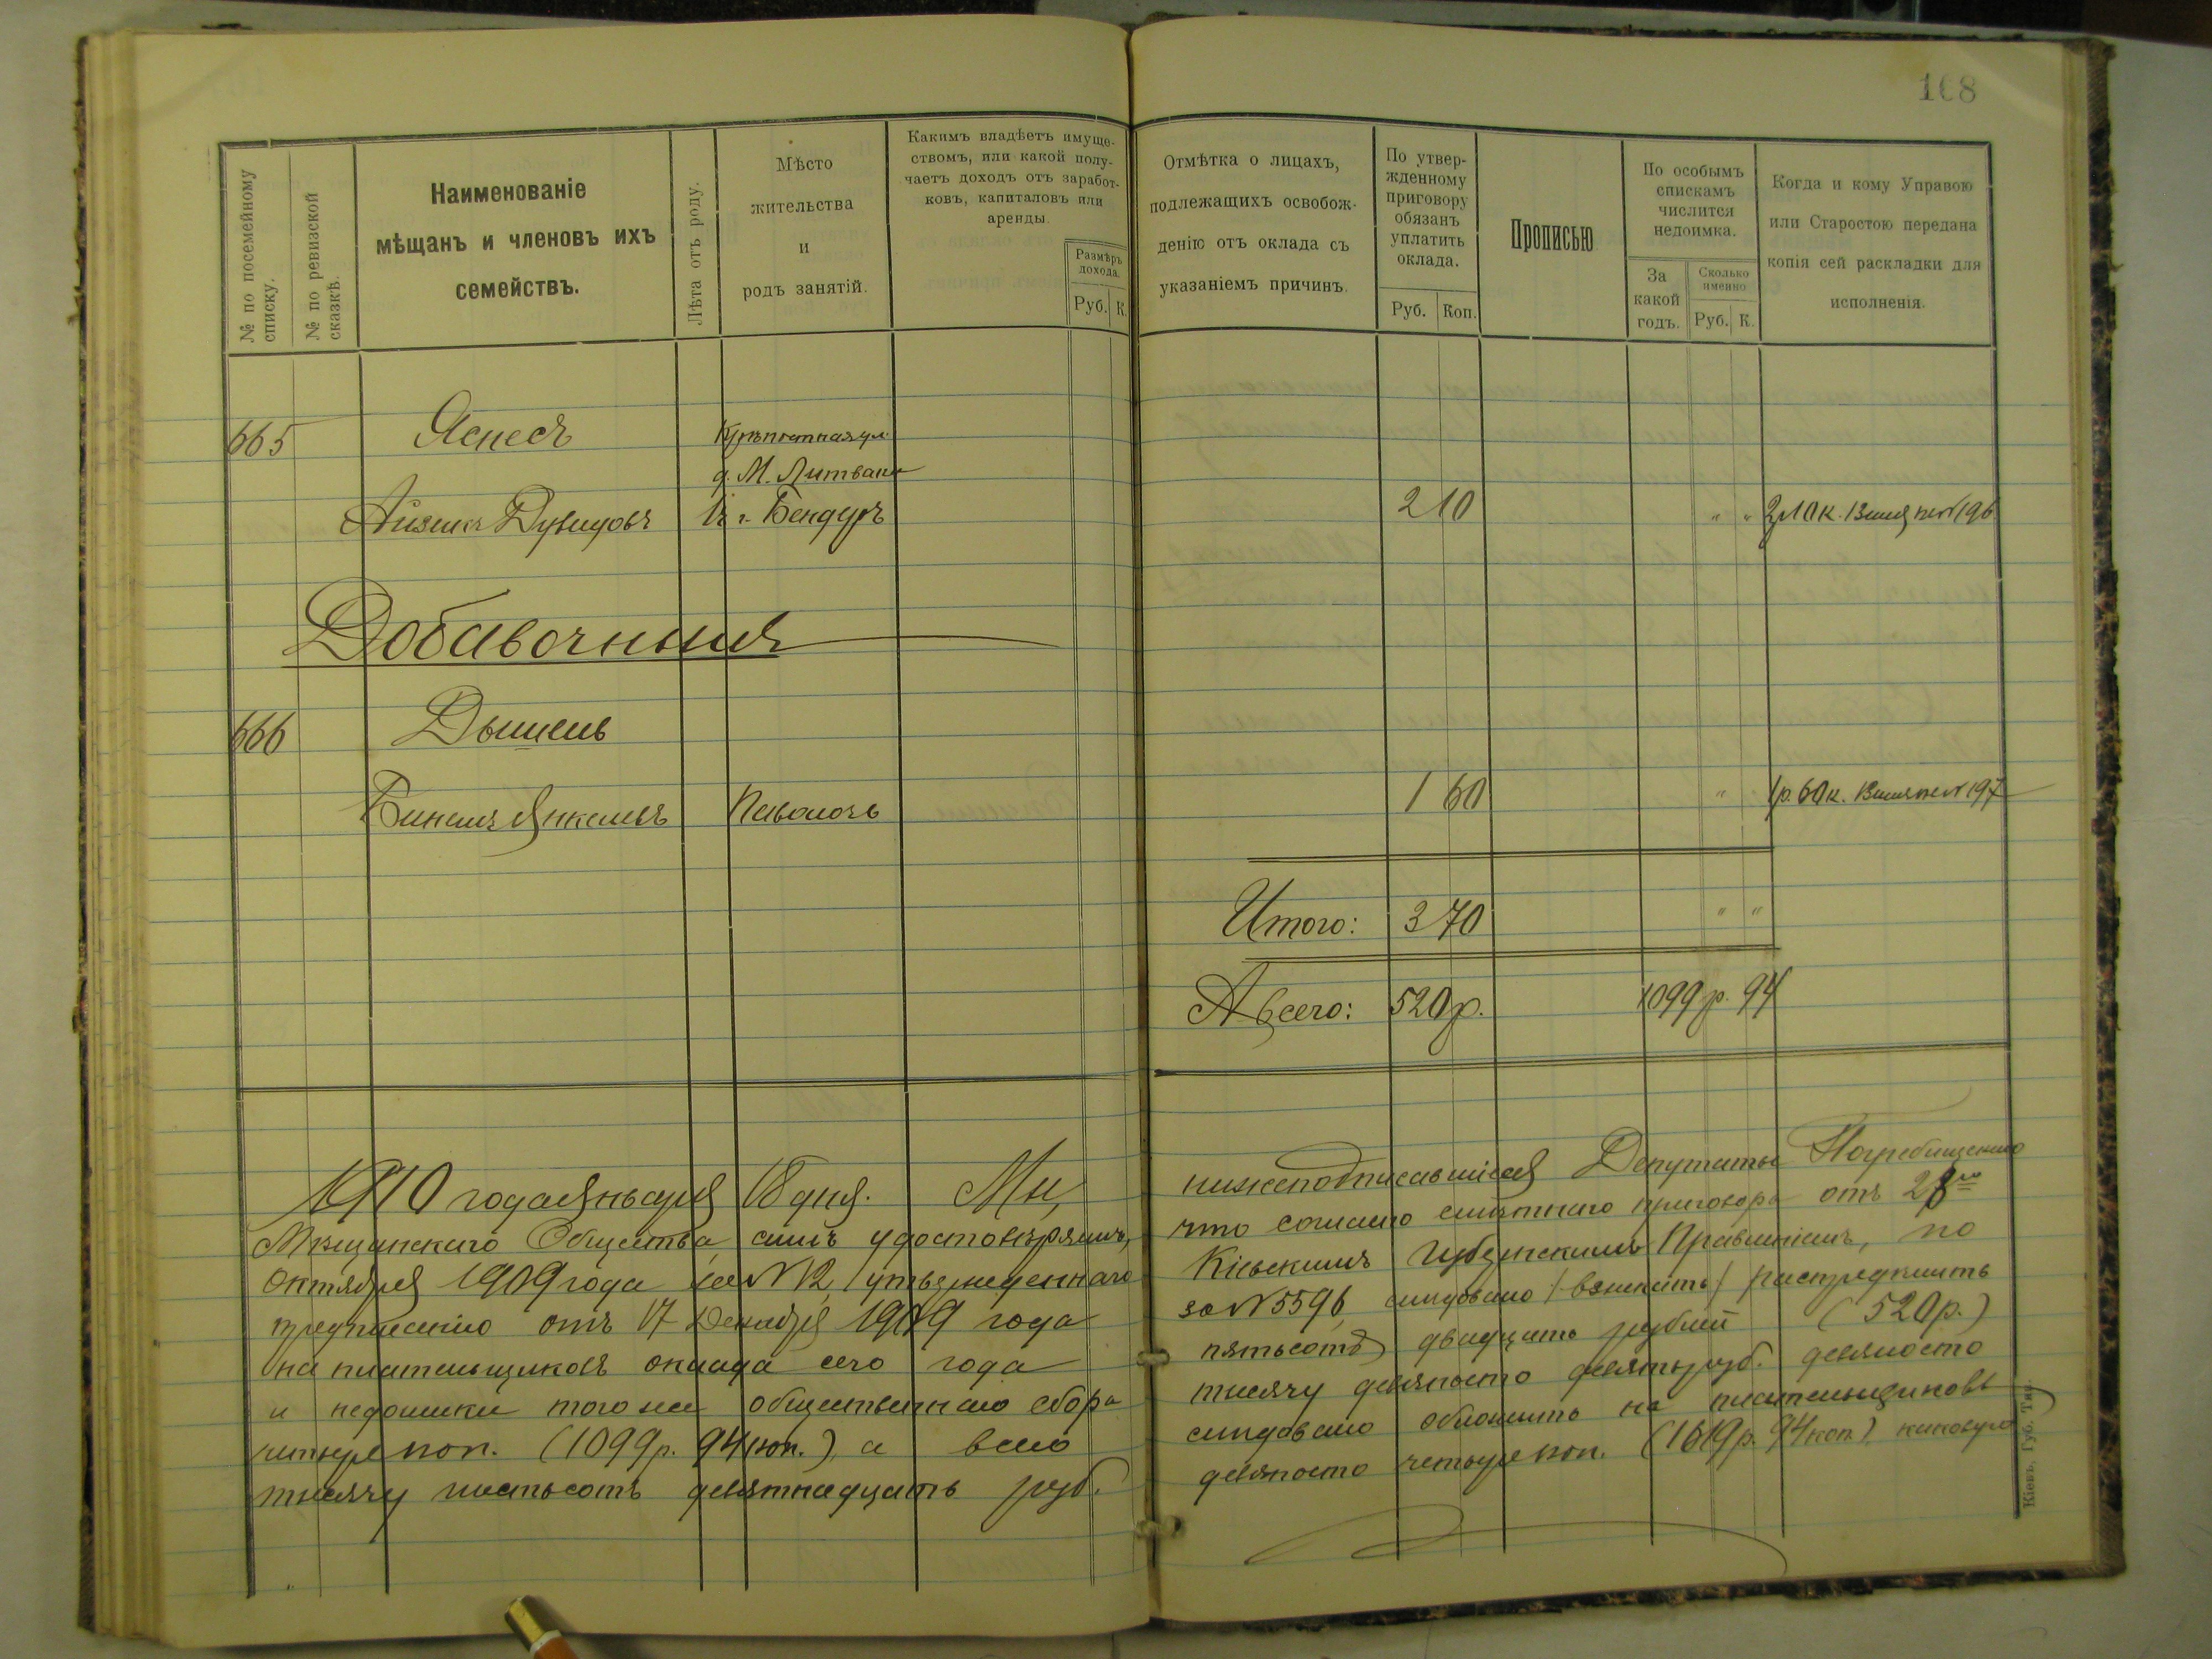 168
№ по посемейному списку.
№ по ревизской сказкѣ.
Наименованіе
мѣщанъ и членовъ ихъ
семействъ.
Лѣта отъ роду.
Мѣсто
жительства
и
родъ занятій.
Какимъ владѣетъ имуще-
ствомъ, или какой полу-
чаетъ доходъ отъ заработ-
ковъ, капиталовъ или
аренды.
Размѣръ
дохода.
Руб. К.
Отмѣтка о лицахъ,
подлежащихъ освобож-
денію отъ оклада съ
указаніемъ причинъ.
По утвер-
жденному
приговору
обязанъ
уплатить
оклада.
Руб. Коп.
Прописью
По особымъ
спискамъ
числится
недоимка.
За
какой
годъ.
Сколько
именно
Руб. К.
Когда и кому Управою
или Старостою передана
копія сей раскладки для
исполненія.
665 Яспесъ Крѣпостная ул.
д. М. Литвака
Айзикъ Дувидовъ въ г. Бендеръ 2 10 " " 2р 10 к. 196
Добавочныя
666 Дышель
Биномъ Янкелевъ Паволочь 1 60 " 1р. 60 к. 197
Итого: 3 70 " "
А всего: 520 р. 1099 р. 94
1910 года Января 18 дня. Мы, нижеподписавшіеся Депутаты Погребищскаго
Мѣщанскаго Общества, симъ удостовѣряемъ, что согласно смѣтнаго приговора отъ 28го
Октября 1909 года за № 2, утвержденнаго Кіевскимъ Губернскимъ Правленіемъ, по
предписанію отъ 17 Декабря 1909 года за № 5596, слѣдовало /взыскать/ распредѣлить
на плательщиковъ оклада сего года пятьсотъ двадцать рублей (520 р.)
и недоимки того же общественнаго сбора тысячу девяносто девять руб. девяносто
четыре коп. (1099 р. 94 коп.), а всего слѣдовало обложить на плательщиковъ
тысячу шестьсотъ девятнадцать руб. девяносто четыре коп. (1619 р. 94 коп.), каковую
Кіевъ, Губ. Тип.